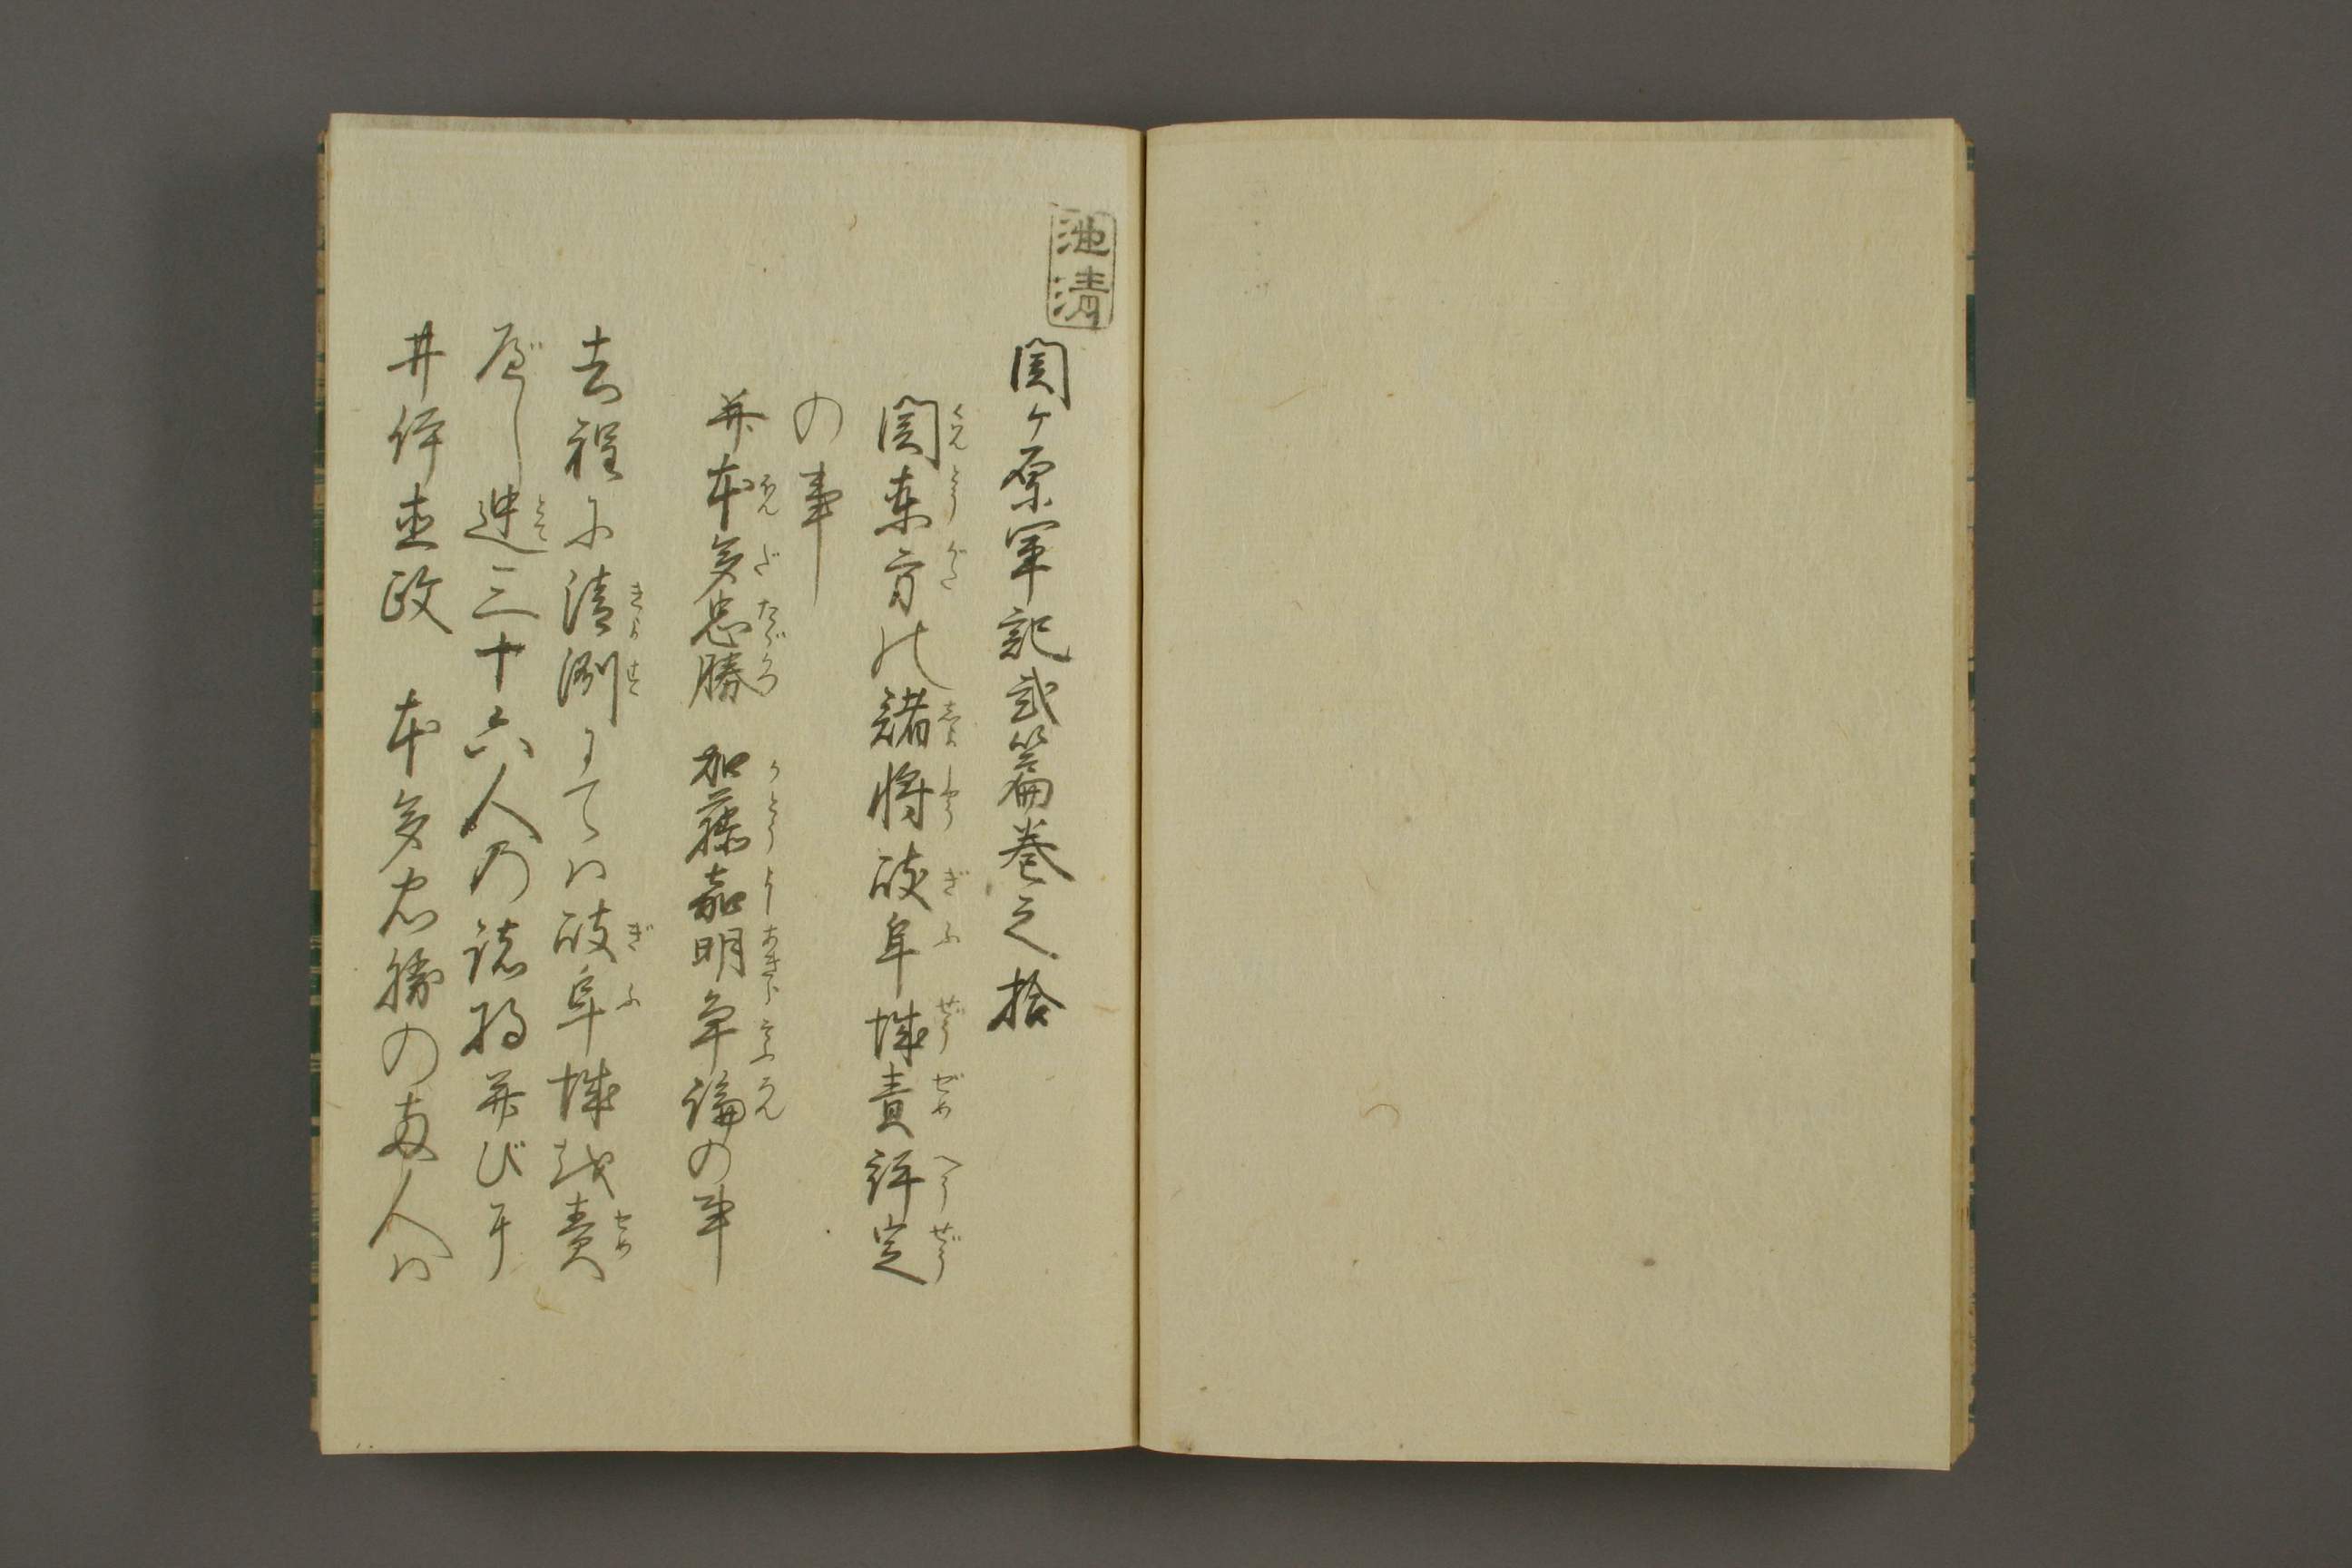 池清
関ヶ原軍記弐篇巻之拾
関東方の諸将岐阜城責評定
の事
并本多忠勝 加藤嘉明争論の事
去程に清洲にては岐阜城を責
べし迚三十六人の諸将并びに
井伊直政 本多忠勝の両人は